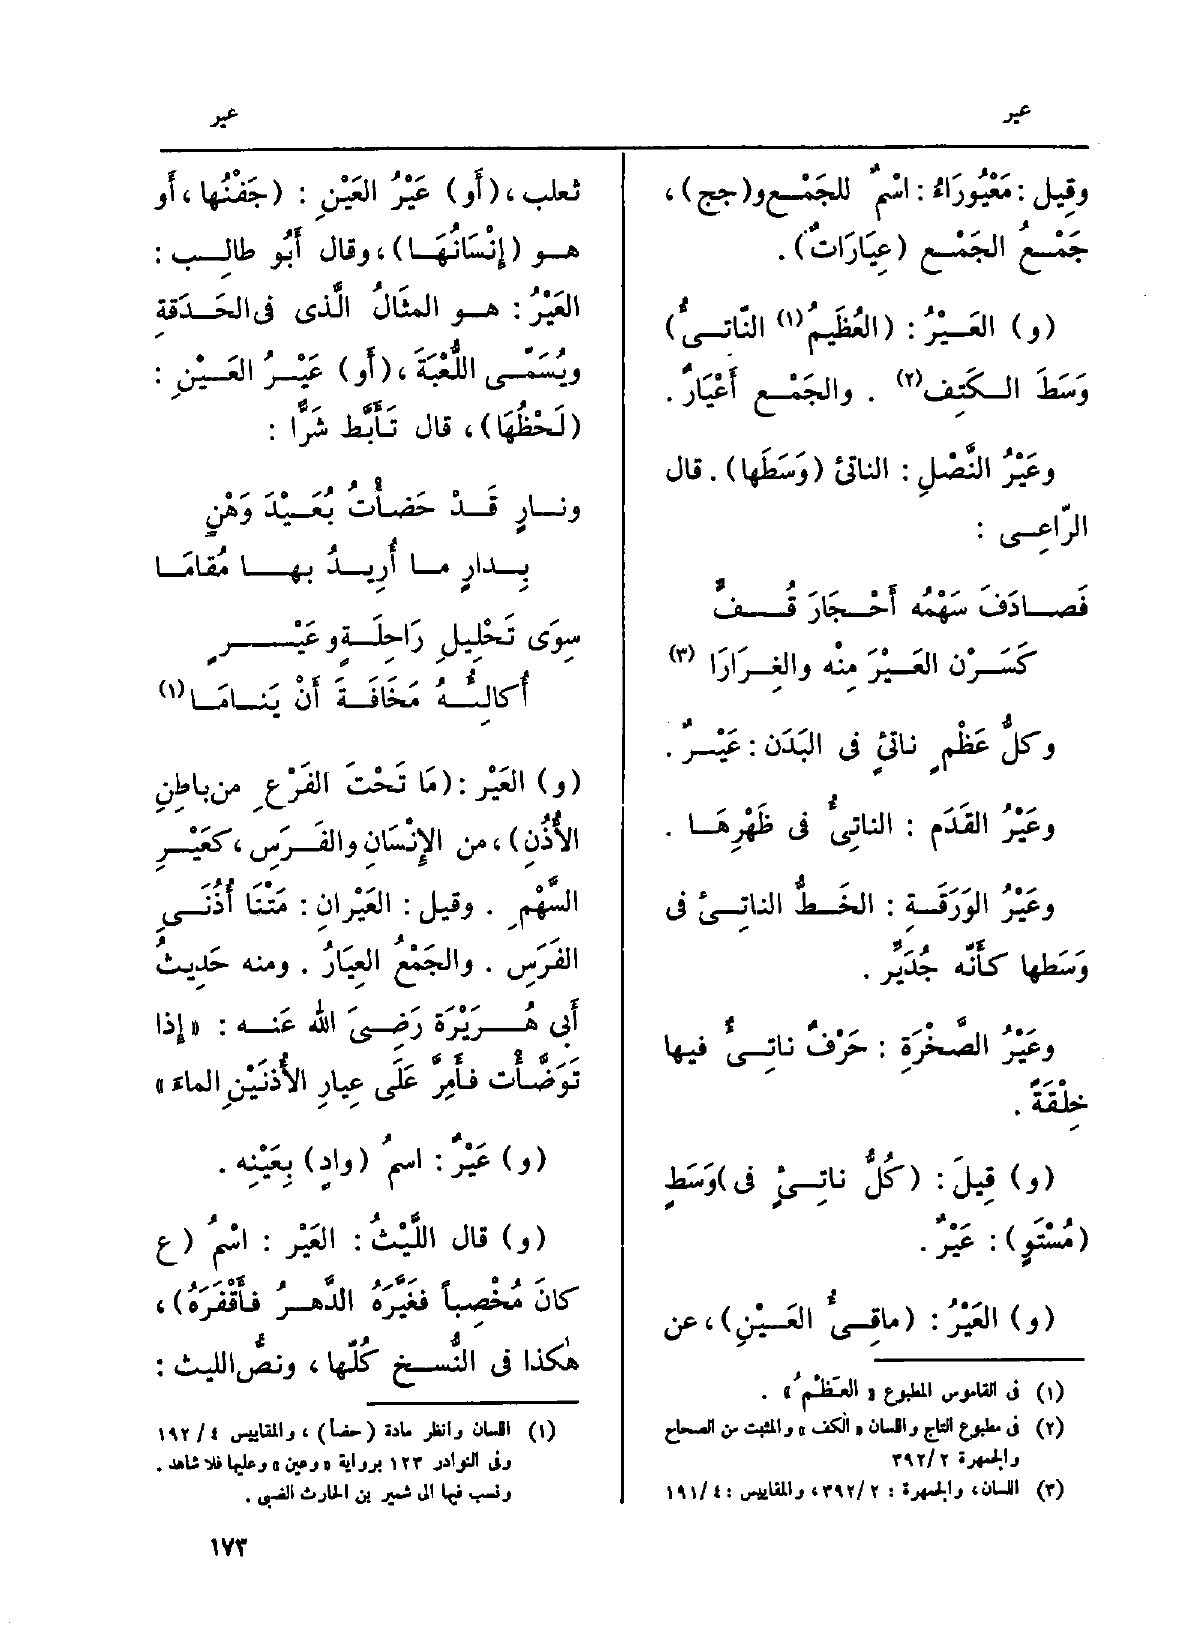 عير
عير
وقِيل : مَعْيُورَاءُ : اسْمٌ للجَمْع و(جج)،
جَمْعُ الجَمْع (عِيَارَاتٌ) .
(و) العَيْرُ : (العُظَيمُ(١) النّاتِئُ)
وَسَطَ الكَتِف(٢) . والجَمْع أَعْيَارٌ .
وعَيْرُ النَّصْلِ : الناتئ (وَسَطَها) . قال
الرّاعِى :
فَصادَفَ سَهْمُه أَحْجَارَ قُفٍّ
كَسَرْن العَيْرَ مِنْه والغِرَارَا (٣)
وكلُّ عَظْمٍ ناتئٍ فى البَدَن : عَيْرٌ .
وعَيْرُ القَدَم : الناتِئُ فى ظَهْرِهَا .
وعَيْرُ الوَرَقَةِ : الخَطُّ الناتِئ فى
وَسَطها كأَنّه جُدَيِّر .
وعَيْرُ الصَّخْرَةِ : حَرْفٌ ناتِئٌ فيها
خِلْقَةً .
(و) قِيلَ : (كُلُّ ناتِئٍ فى)وَسَطٍ
(مُسْتَوٍ) : عَيْرٌ .
(و) العَيْرُ : (ماقِئُ العَيْنِ)، عن
(١) فى القاموس المطبوع « العَظْمُ » .
(٢) فى مطبوع التاج واللسان « الكف » والمثبت من الصحاح
والجمهرة ٣٩٢/٢
(٣) اللسان، والجمهرة : ٣٩٢/٢، والمقاييس : ١٩١/٤
ثعلب، (أَو) عَيْرُ العَيْنِ : (جَفْنُها، أَو
هو (إِنْسَانُهَا)، وقال أَبُو طالِب :
العَيْرُ : هو المثَالُ الَّذى فى الحَدَقةِ
ويُسَمَّى اللُّعْبَةَ، (أَو) عَيْرُ العَيْنِ :
(لَحْظُهَا)، قال تَأَبَّط شَرًّا :
ونارٍ قَدْ حَضأْتُ بُعَيْدَ وَهْنٍ
بِدارٍ ما أُرِيدُ بها مُقامَا
سِوَى تَحْلِيلِ رَاحِلَةٍ وعَيْرٍ
أُكالِئُهُ مَخَافَةَ أَنْ يَنامَا(١)
(و) العَيْر : (مَا تَحْتَ الفَرْعِ من باطِنِ
الأُذُنِ)، من الإِنْسَانِ والفَرَسِ، كعَيْرِ
السَّهْمِ . وقيل : العَيْرانِ : مَتْنَا أُذُنَىِ
الفَرَسِ . والجَمْعُ العِيَارُ . ومنه حَدِيثُ
أَبى هُرَيْرَة رَضِىَ الله عَنه : « إِذا
تَوَضَّأْت فأَمِرَّ عَلَى عِيارِ الأُذنَيْنِ الماءَ »
(و) عَيْرٌ : اسمُ (وادٍ) بِعَيْنِه .
(و) قال اللَّيْثُ : العَيْر : اسْمُ (ع
كانَ مُخْصِباً فغَيَّرَهُ الدَّهرُ فأَقْفَرَهُ)،
هٰكذا فى النُّسخ كُلّها، ونصُّ الليث :
(١) اللسان وانظر مادة (حضأ)، والمقاييس ٤ /١٩٢
وفى النوادر ١٢٣ برواية « وعين » وعليها فلا شاهد .
ونسب فيها الى شمير بن الحارث الضبى .
١٧٣